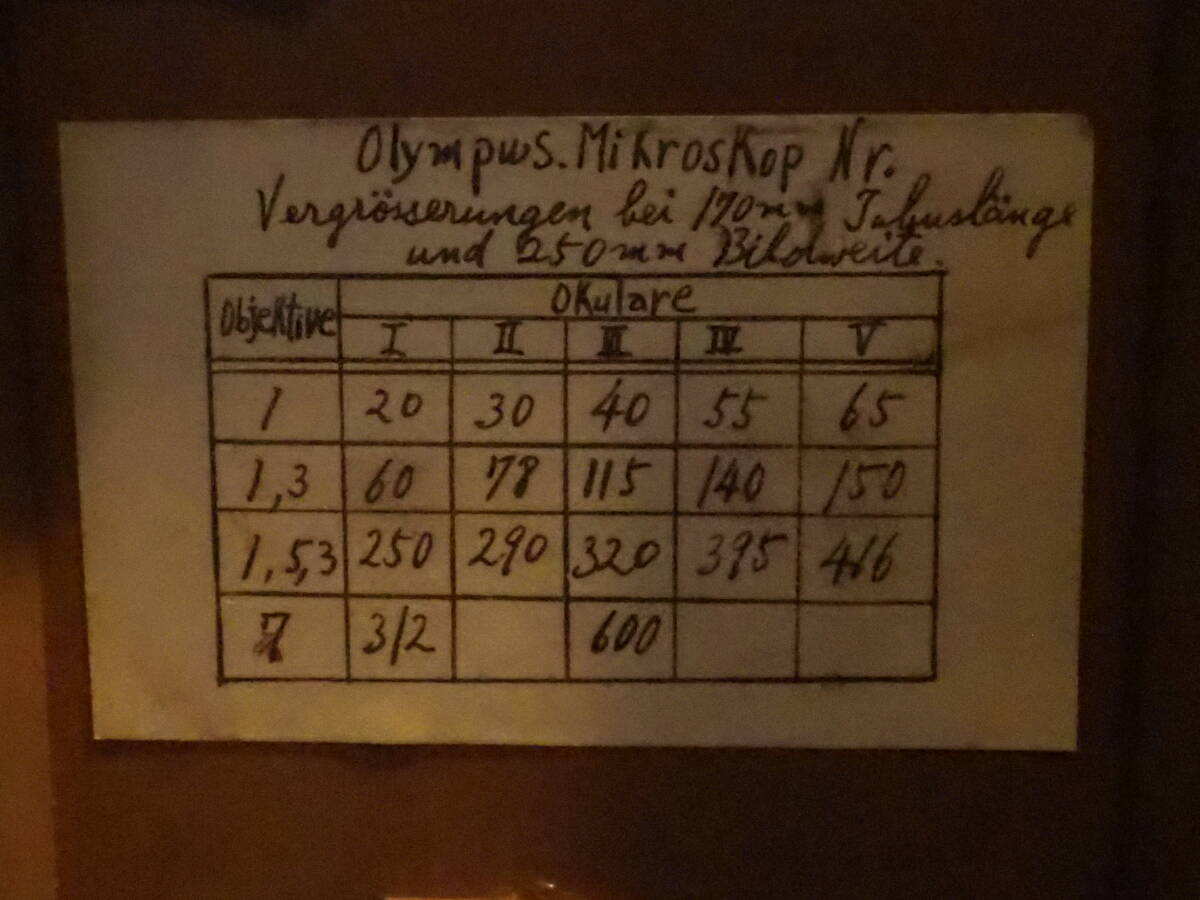 Olympus. Mikroskop Nr.
Vergrösserungen bei 170mm Tubuslänge
und 250mm Bildweite.
Objektive Okulare
I II III IV V
1 20 30 40 55 65
1,3 60 78 115 140 150
1,5,3 250 290 320 395 466
7 312 600